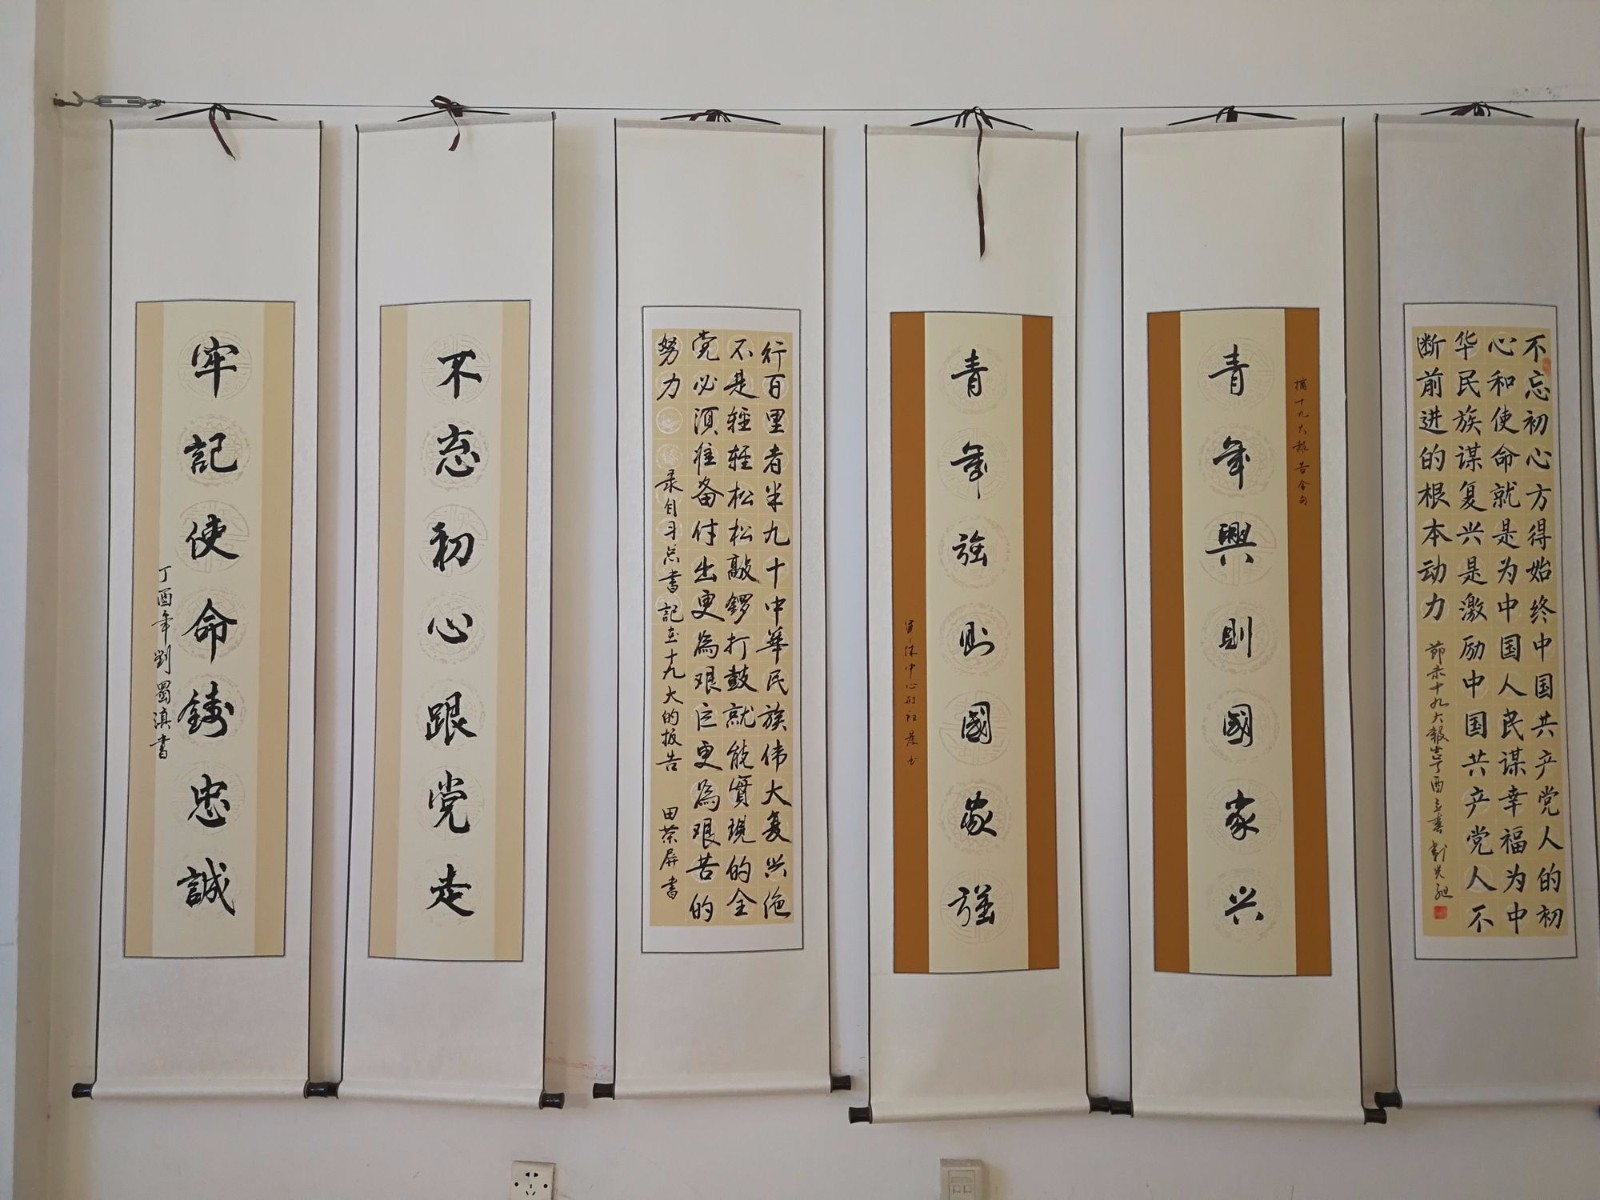 不忘初心方得始终中国共产党人的初
心和使命就是为中国人民谋幸福为中
华民族谋复兴是激励中国共产党人不
断前进的根本动力
節录十九大報告丁酉立春
摘十九大報告金句
青年興則國家兴
青年强則國家强
行百里者半九十中華民族伟大复兴绝
不是轻轻松松敲锣打鼓就能實現的全
党必須准备付出更為艰巨更為艰苦的
努力
录自习总書記在十九大的报告
田荣屏書
不忘初心跟党走
牢記使命鑄忠誠
丁酉年劉蜀滇書